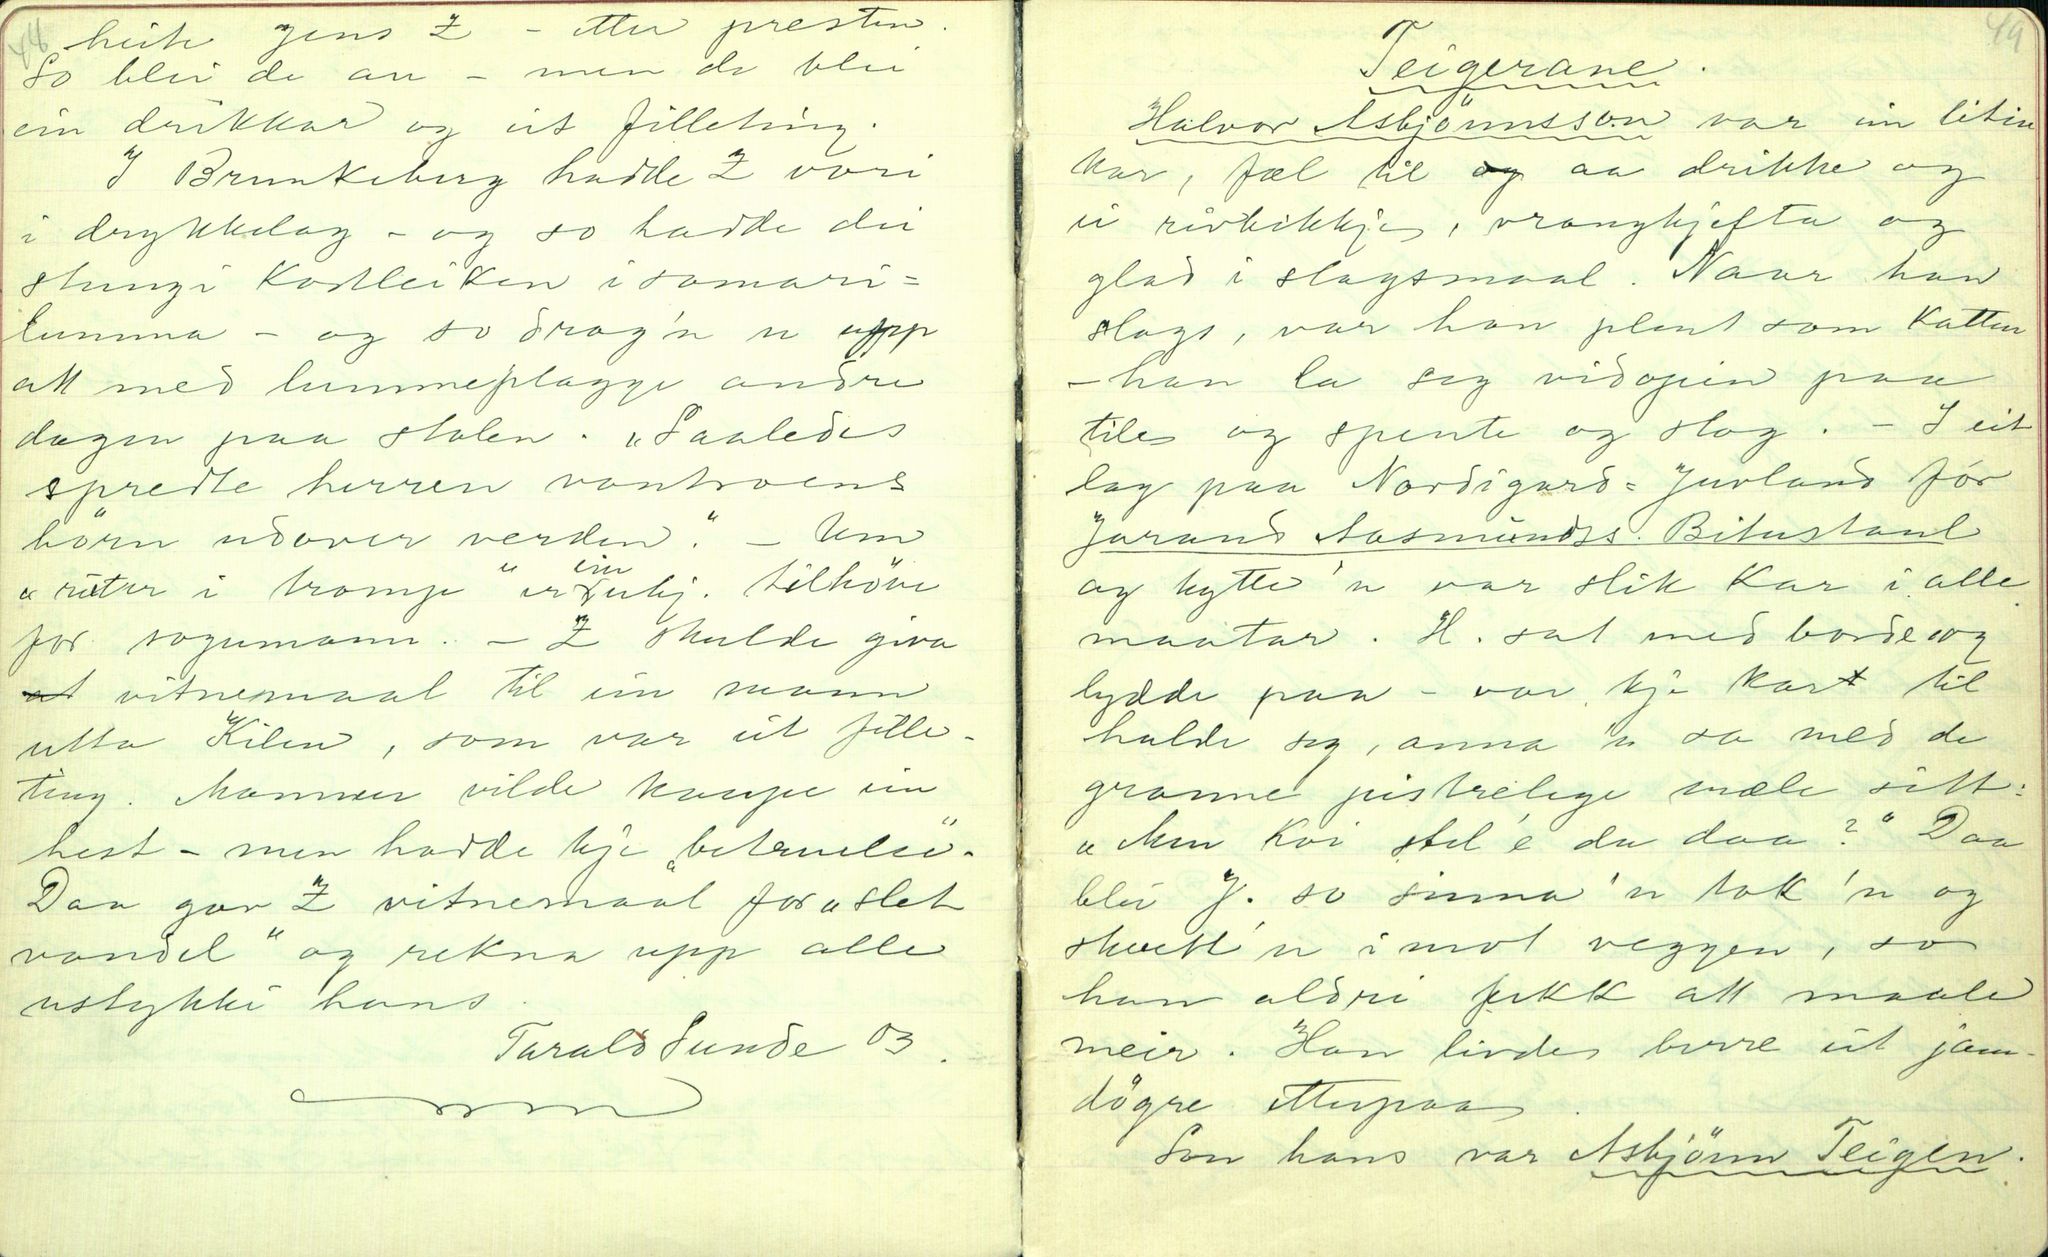 48
heite Jens Z - etter presten.
So blei de au - men de blei
ein drikkar og eit filleting.
I Brunkeberg hadde Z vori
i drykkelag - og so hadde dei
stungi Kortleiken i samari=
lumma - og so drog'n n upp
att med lummeplaggji andre
dagen paa stolen. „Saaledes
spredte herren vantroens
börn udover verden." - Um
„ritar i trompe" er ein ukj. tilhöve
for sogumann. - Z skulde giva
vitnemaal til ein mann
utta Kilen, som var eit fille-
ting. Mannen vilde kaupe ein
hest - men hadde kje „betruelsi".
Daa gav Z vitnemaal for „slet
vandel" og rekna upp alle
ustykki hans.
Tarald Sunde 03.
49
Teigerane.
Halvor Asbjönnsson var ein liten
kar, fæl til og aa drikke og
ei rivbikkje, vrangkjefta og
glad i slagsmaal. Naar han
slogs, var han plent som Katten
- han la seg vidopin paa
tile og spente og slog. - I eit
lag paa Nordigard=Juvland för
Jorand Aasmundss. Bitustaul
og kytte 'n var slik Kar i alle
maatar. H. sat med borde og
lydde paa - var kje kar til
halde seg, anna 'n sa med de
granne pistrelege mæle sitt:
„Men Koi stel'e du daa?" Daa
blei J. so sinna 'n tok 'n og
skvett 'n imot veggen, so
han aldri fekk att maale
meir. Han livde berre eit jam-
dögre etterpaa.
Son hans var Asbjönn Teigen.